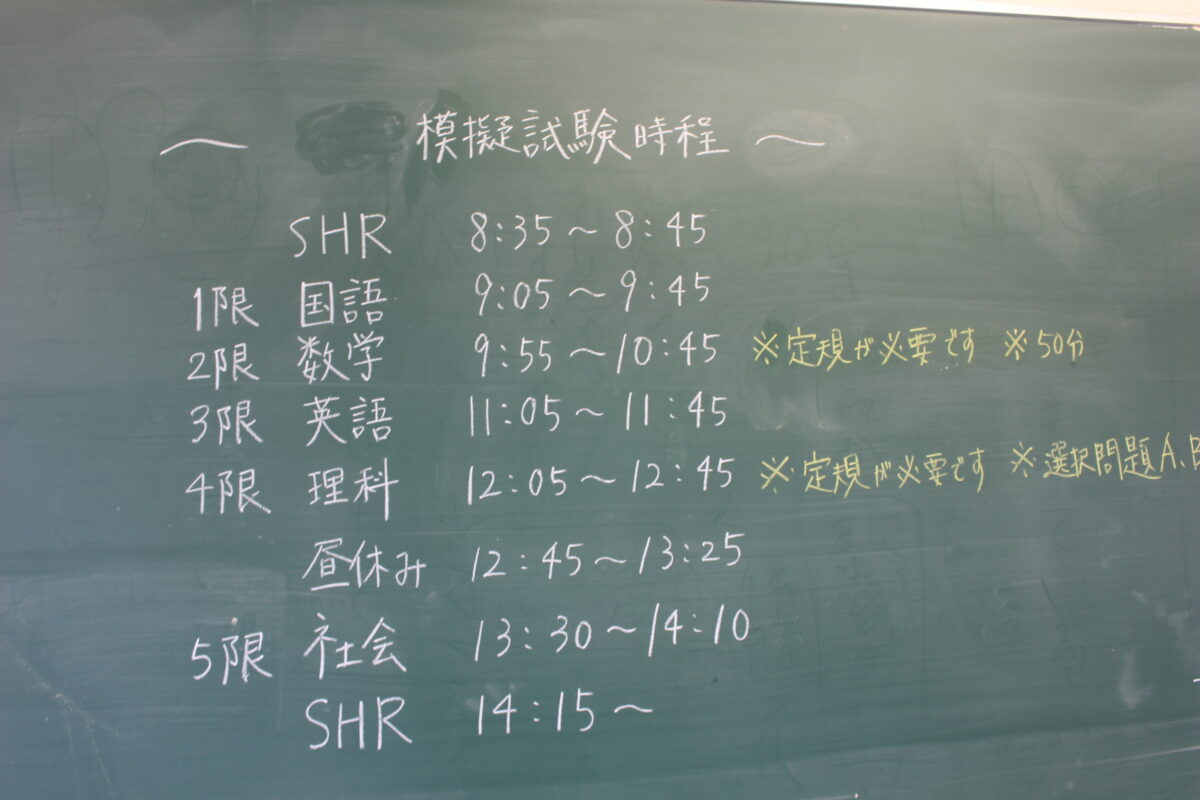 ～ 模擬試験時程 ～
SHR 8:35～8:45
1限 国語 9:05～9:45
2限 数学 9:55～10:45 ※定規が必要です ※50分
3限 英語 11:05～11:45
4限 理科 12:05～12:45 ※定規が必要です ※選択問題A、B
昼休み 12:45～13:25
5限 社会 13:30～14:10
SHR 14:15～